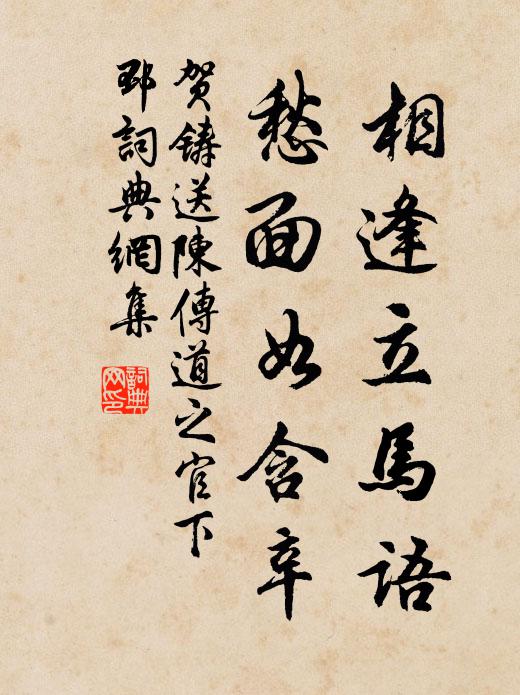 相逢立馬語
愁面如含辛
賀鑄送陳傳道之官下
邳詞典網集
詞典網印